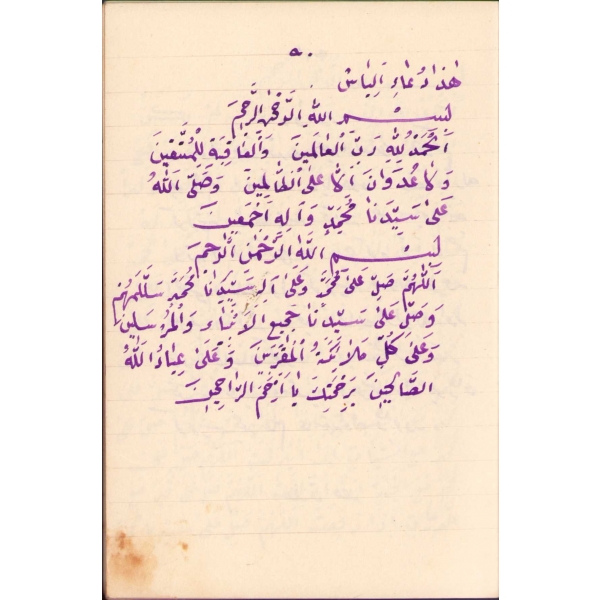 ٥٠
هٰذَا دُعَاءِ اَلِيَاسْ
بِسْمِ اللّٰهِ الرَّحْمٰنِ الرَّحِيمَ
اَلْحَمْدُ لِلّٰهِ رَبِّ الْعَالَمِينَ وَالْعَاقِبَةِ لِلْمُتَّقِينَ
وَلَا عُدْوَانَ اِلَّا عَلَى الظَّالِمِينَ وَصَلَّى اللّٰهُ
عَلٰى سَيِّدِنَا مُحَمَّدٍ وَاٰلِهِ اَجْمَعِينَ
بِسْمِ اللّٰهِ الرَّحْمٰنِ الرَّحِيمَ
اَللّٰهُمَّ صَلِّ عَلٰى مُحَمَّدٍ وَعَلٰى اٰلِ سَيِّدِنَا مُحَمَّدٍ
وَصَلِّ عَلٰى سَيِّدِنَا جَمِيعِ الْاَنْبِيَاءِ وَالْمُرْسَلِينَ
وَعَلٰى كُلِّ مَلَائِكَةُ الْمُقَرَّبِينَ وَعَلٰى عِبَادُ اللّٰهُ
الصَّالِحِينَ بِرَحْمَتِكَ يَا اَرْحَمَ الرَّاحِمِينَ